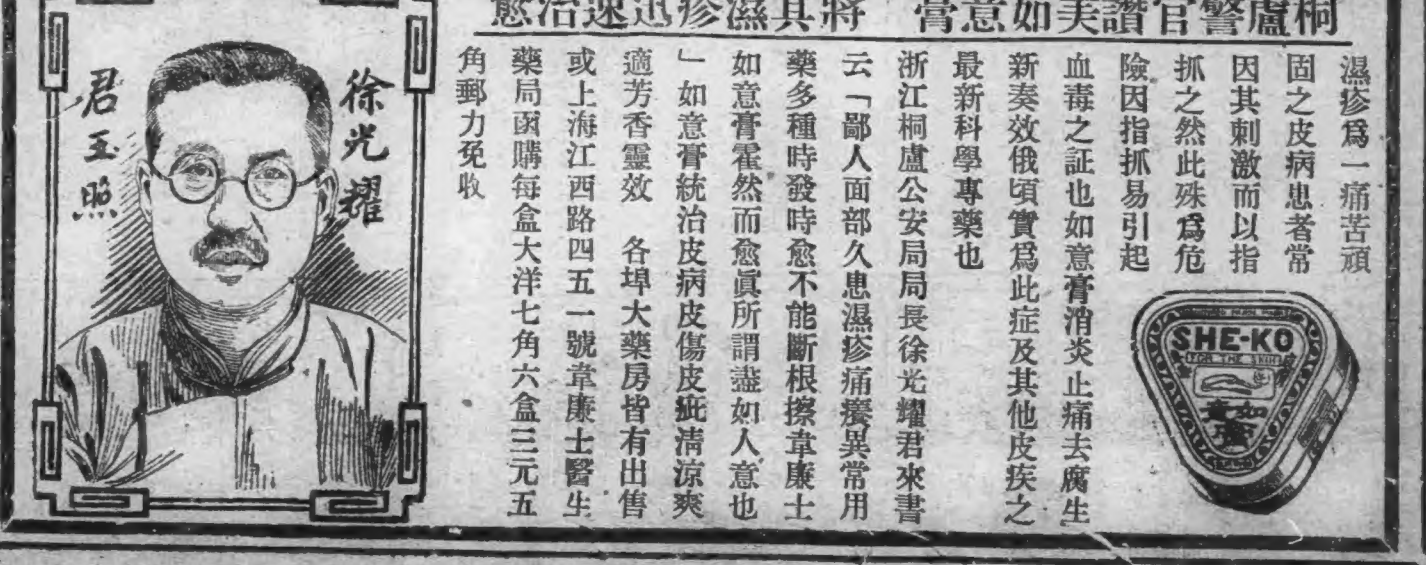 桐廬警官讚美如意膏　將其濕疹迅速治愈
濕疹爲一痛苦頑
固之皮病患者常
因其刺激而以指
抓之然此殊爲危
險因指抓易引起
血毒之証也如意膏消炎止痛去腐生
新奏效俄頃實爲此症及其他皮疾之
最新科學專藥也
浙江桐盧公安局局長徐光耀君來書
云「鄙人面部久患濕疹痛癢異常用
藥多種時發時愈不能斷根擦韋廉士
如意膏霍然而愈眞所謂盡如人意也
」如意膏統治皮病皮傷皮疵清凉爽
適芳香靈效　各埠大藥房皆有出售
或上海江西路四五一號韋廉士醫生
藥局函購每盒大洋七角六盒三元五
角郵力免收
SHE-KO
FOR THE SKIN
如意膏
徐光耀
君玉照